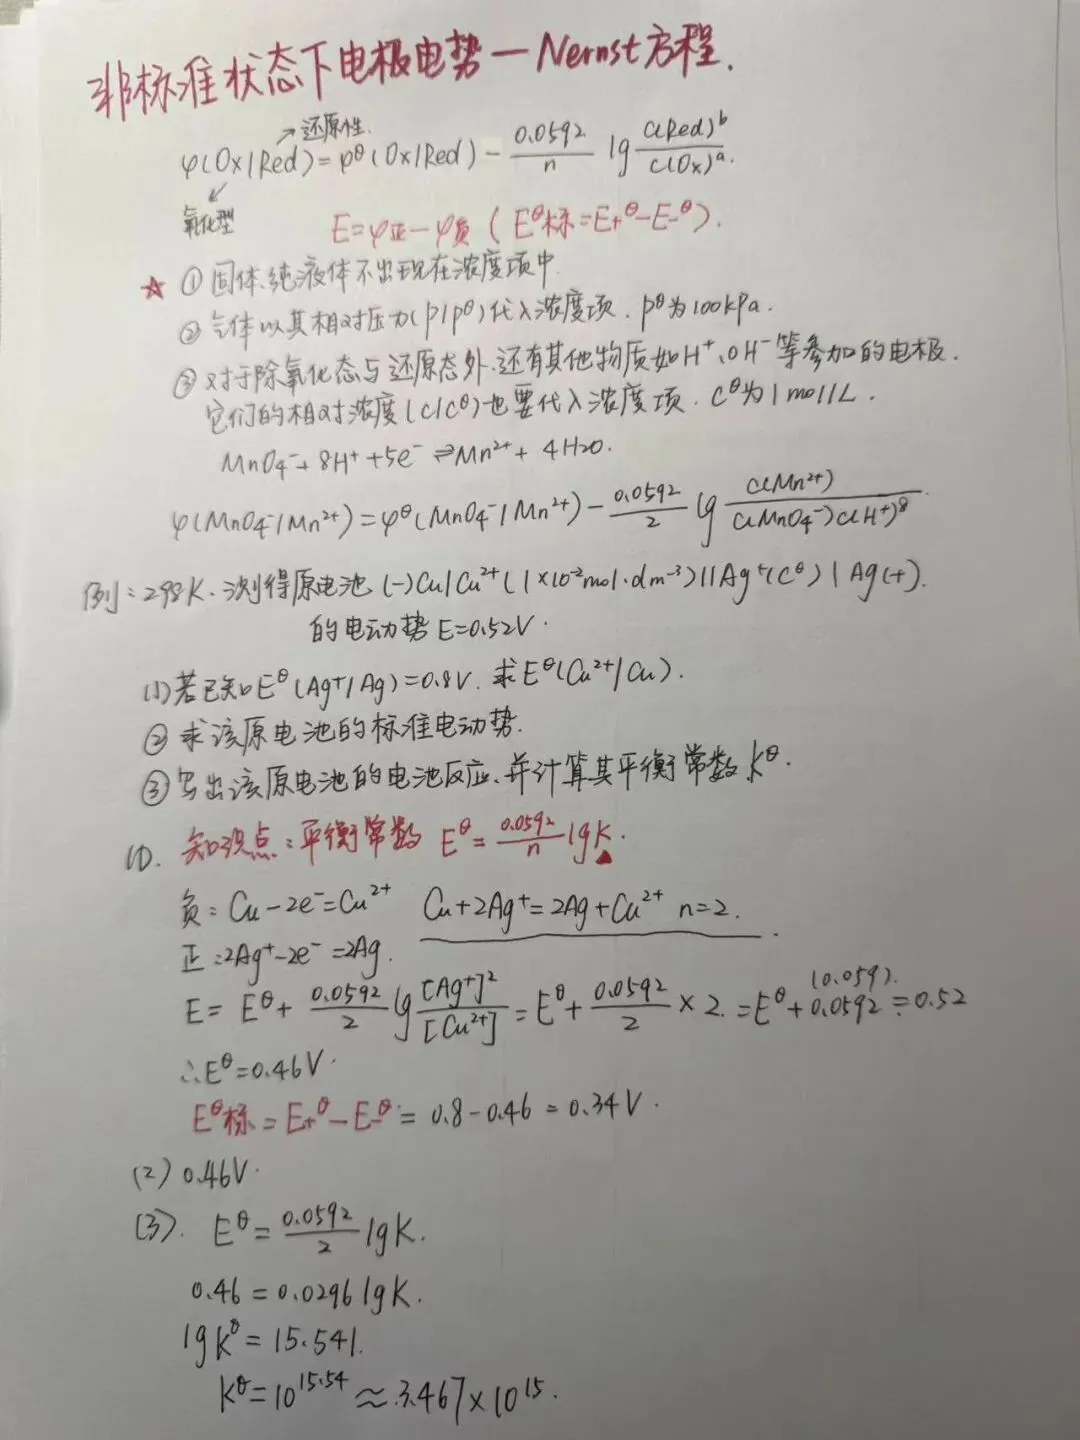 非标准状态下电极电势—Nernst方程.
→还原性.
φ(Ox/Red)=φ^θ(Ox/Red)-\frac{0.0592}{n} lg\frac{c(Red)^b}{c(Ox)^a}.
氧化型
E=φ正-φ负 (E^θ标=E+^θ-E-^θ).
☆ ①固体.纯液体不出现在浓度项中.
②气体以其相对压力(p/p^θ)代入浓度项. p^θ为100kPa.
③对于除氧化态与还原态外.还有其他物质如H⁺、OH⁻等参加的电极.
它们的相对浓度(c/c^θ)也要代入浓度项. c^θ为1mol/L.
MnO4⁻+8H⁺+5e⁻⇌Mn²⁺+4H2O.
φ(MnO4⁻/Mn²⁺)=φ^θ(MnO4⁻/Mn²⁺)-\frac{0.0592}{2} lg\frac{c(Mn²⁺)}{c(MnO4⁻)c(H⁺)^8}.
例:298K.测得原电池 (-)Cu|Cu²⁺(1×10⁻²mol·dm⁻³)||Ag⁺(c^θ)|Ag(+).
的电动势E=0.52V.
(1)若已知E^θ(Ag⁺/Ag)=0.8V.求E^θ(Cu²⁺/Cu).
②求该原电池的标准电动势.
③写出该原电池的电池反应.并计算其平衡常数K^θ.
(1). 知识点:平衡常数 E^θ=\frac{0.0592}{n}lgK.
负:Cu-2e⁻=Cu²⁺ Cu+2Ag⁺=2Ag+Cu²⁺ n=2.
正:2Ag⁺-2e⁻=2Ag.
(0.059).
E=E^θ+\frac{0.0592}{2}lg\frac{[Ag⁺]²}{[Cu²⁺]}=E^θ+\frac{0.0592}{2}×2.=E^θ+0.0592=0.52
∴E^θ=0.46V.
E^θ标=E+^θ-E-^θ=0.8-0.46=0.34V.
(2) 0.46V.
(3). E^θ=\frac{0.0592}{2}lgK.
0.46=0.0296lgK.
lgK^θ=15.541.
K^θ=10^{15.54}≈3.467×10^{15}.